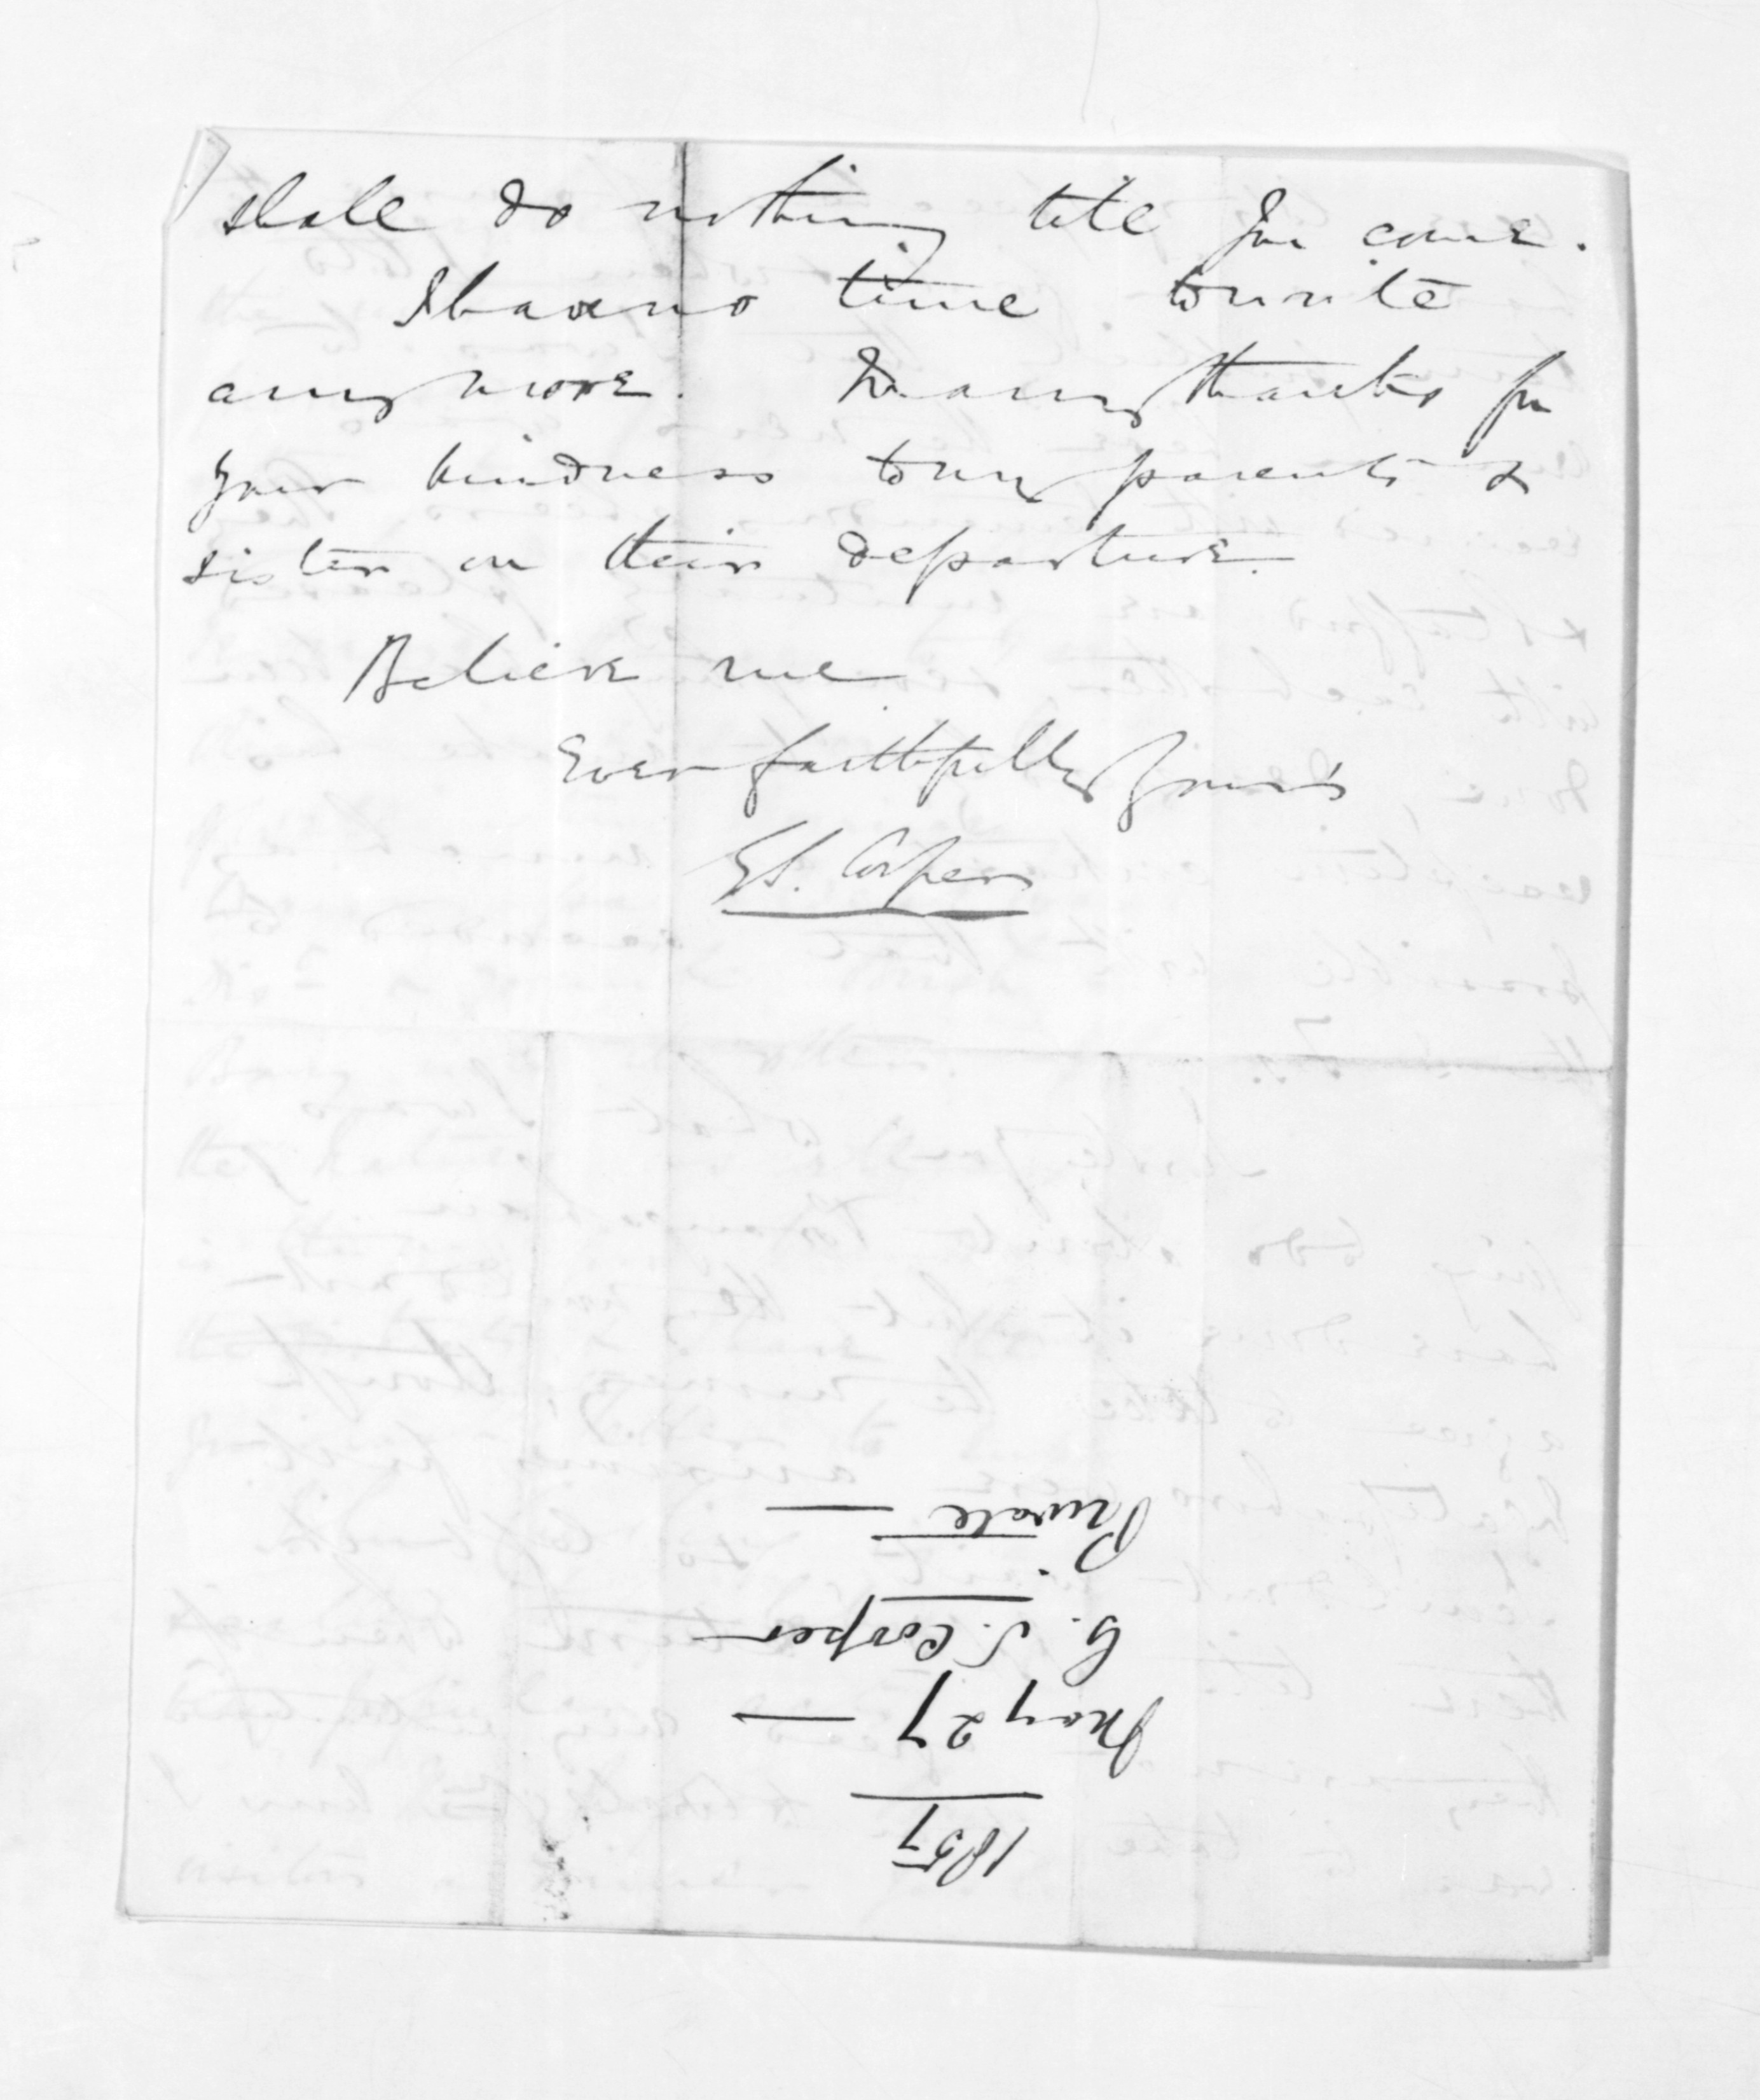 shall do nothing till you come.
I have no time to write
any more. Many thanks for
your kindness to my parents &
sister on their departure.
Believe me
Ever faithfully yours
G S. Cooper
1857
May 27 —
G. S. Cooper —
Private —